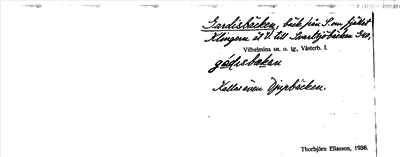 Gardisbäcken, bäck från S. om fjället
Klingern åt V. till Svartsjöbäcken
Vilhelmina sn. o. tg., Västerb. l.
gádisbækan
Kallas även Djupbäcken.
Thorbjörn Eliasson, 1936.